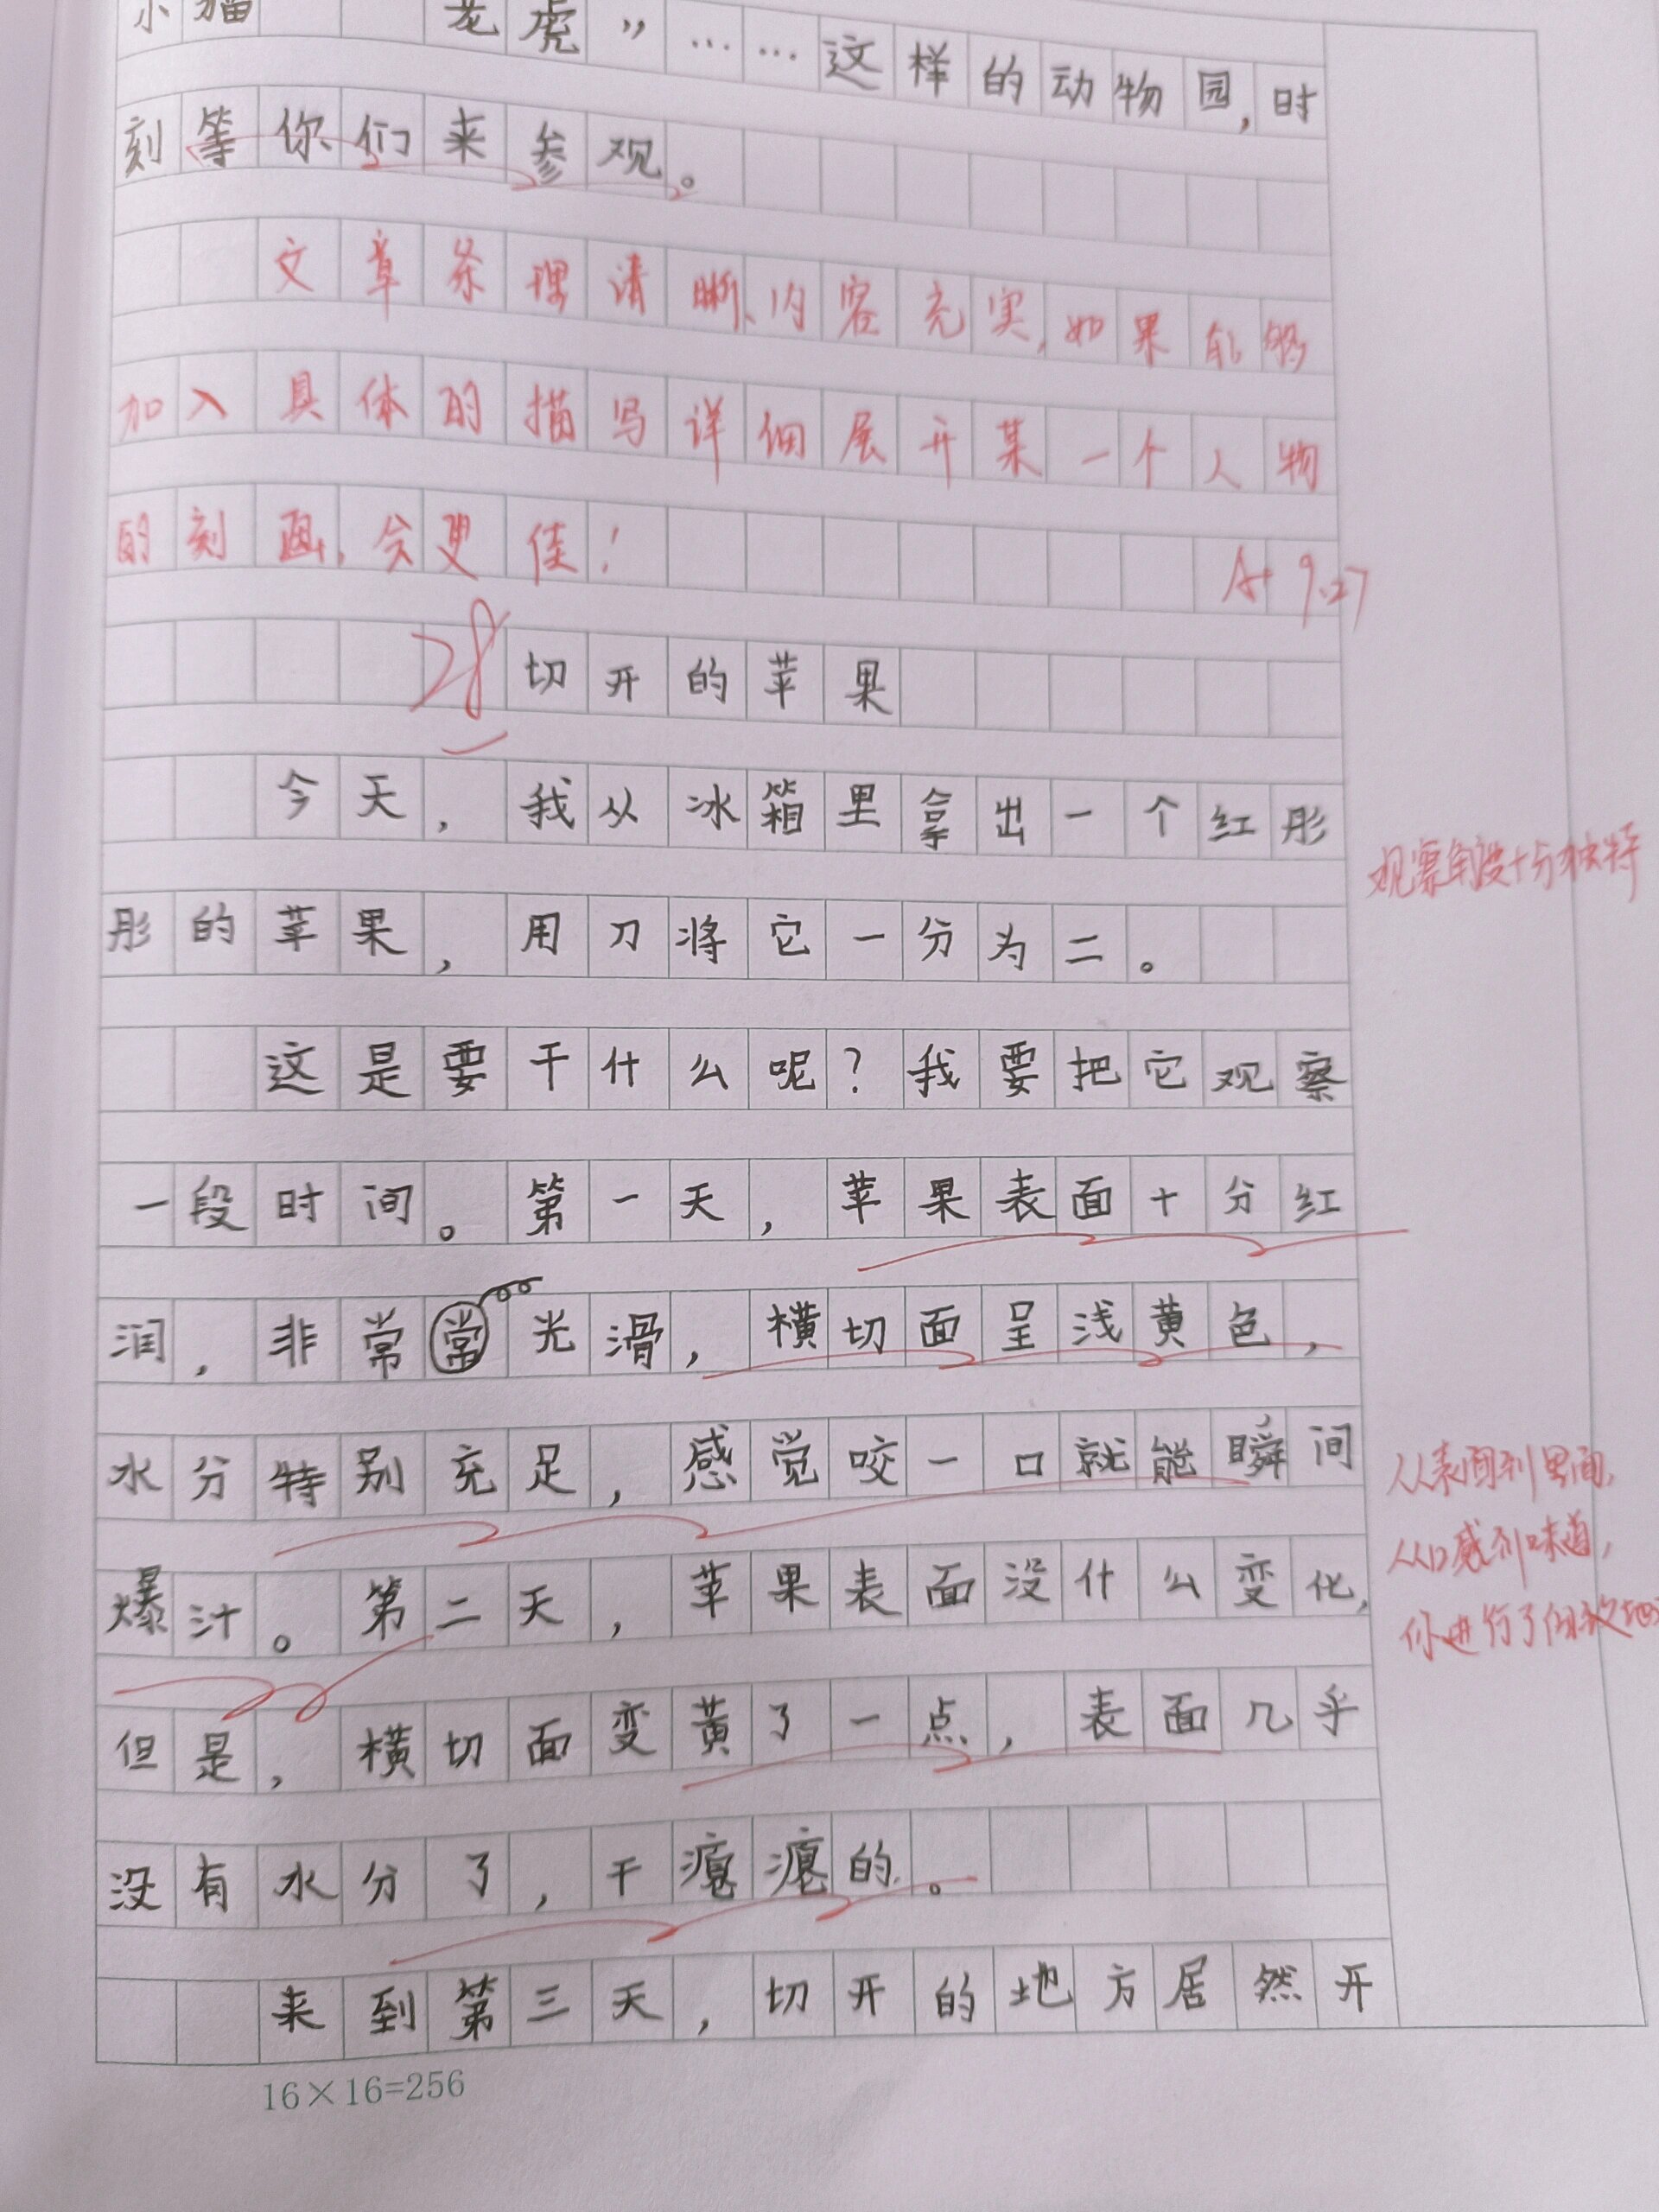 小猫 老虎”……这样的动物园,时
刻等你们来参观。
文章条理清晰、内容充实,如果能够
加入具体的描写详细展开某一个人物
的刻画,会更佳!
A+ 9.27
28
切开的苹果
今天,我从冰箱里拿出一个红彤
观察角度十分独特
彤的苹果,用刀将它一分为二。
这是要干什么呢?我要把它观察
一段时间。第一天,苹果表面十分红
润,非常光滑,横切面呈浅黄色,
水分特别充足,感觉咬一口就能瞬间
从表面到里面,
爆汁。第二天,苹果表面没什么变化,
从口感到味道,
你进行了细致地
但是,横切面变黄了一点,表面几乎
没有水分了,干瘪瘪的。
来到第三天,切开的地方居然开
16×16=256